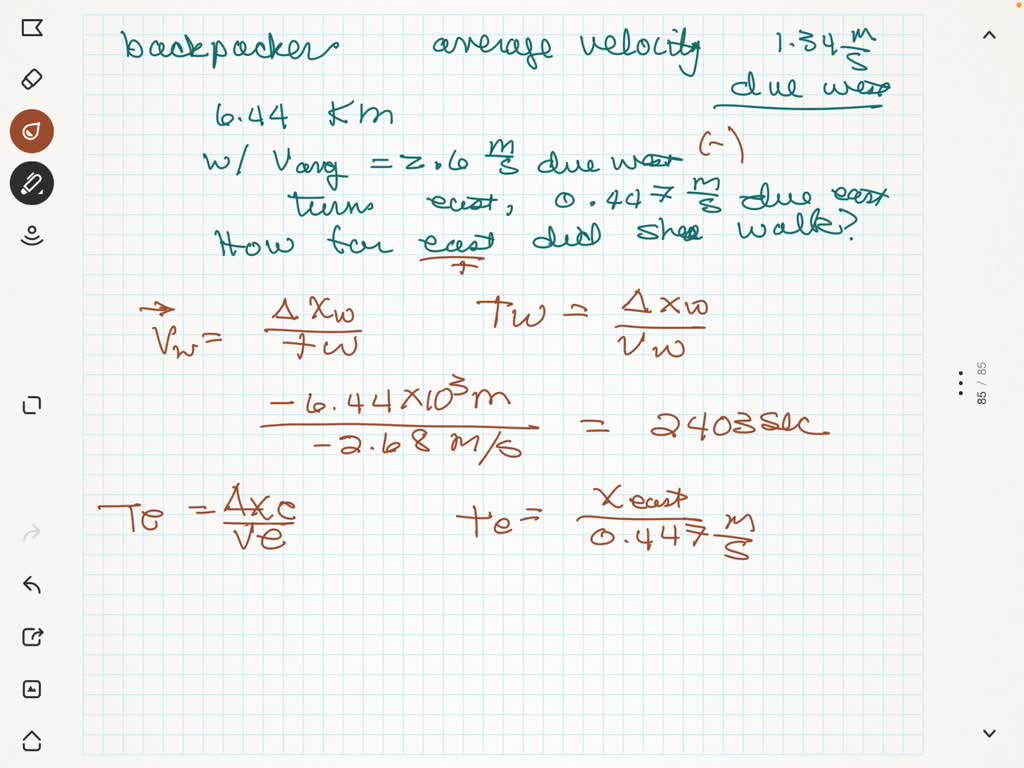 backpacker average velocity 1.34 m/s
due west
6.44 Km
w/ Vavg = 2.6 m/s due west (-)
turns east, 0.447 m/s due east
How far east did she walk?
+
Vw = Δxw/tw Tw = Δxw/vw
-6.44×10³m/-2.68 m/s = 2403 sec
Te = Δxe/Ve te = xeast/0.447 m/s
85 / 85